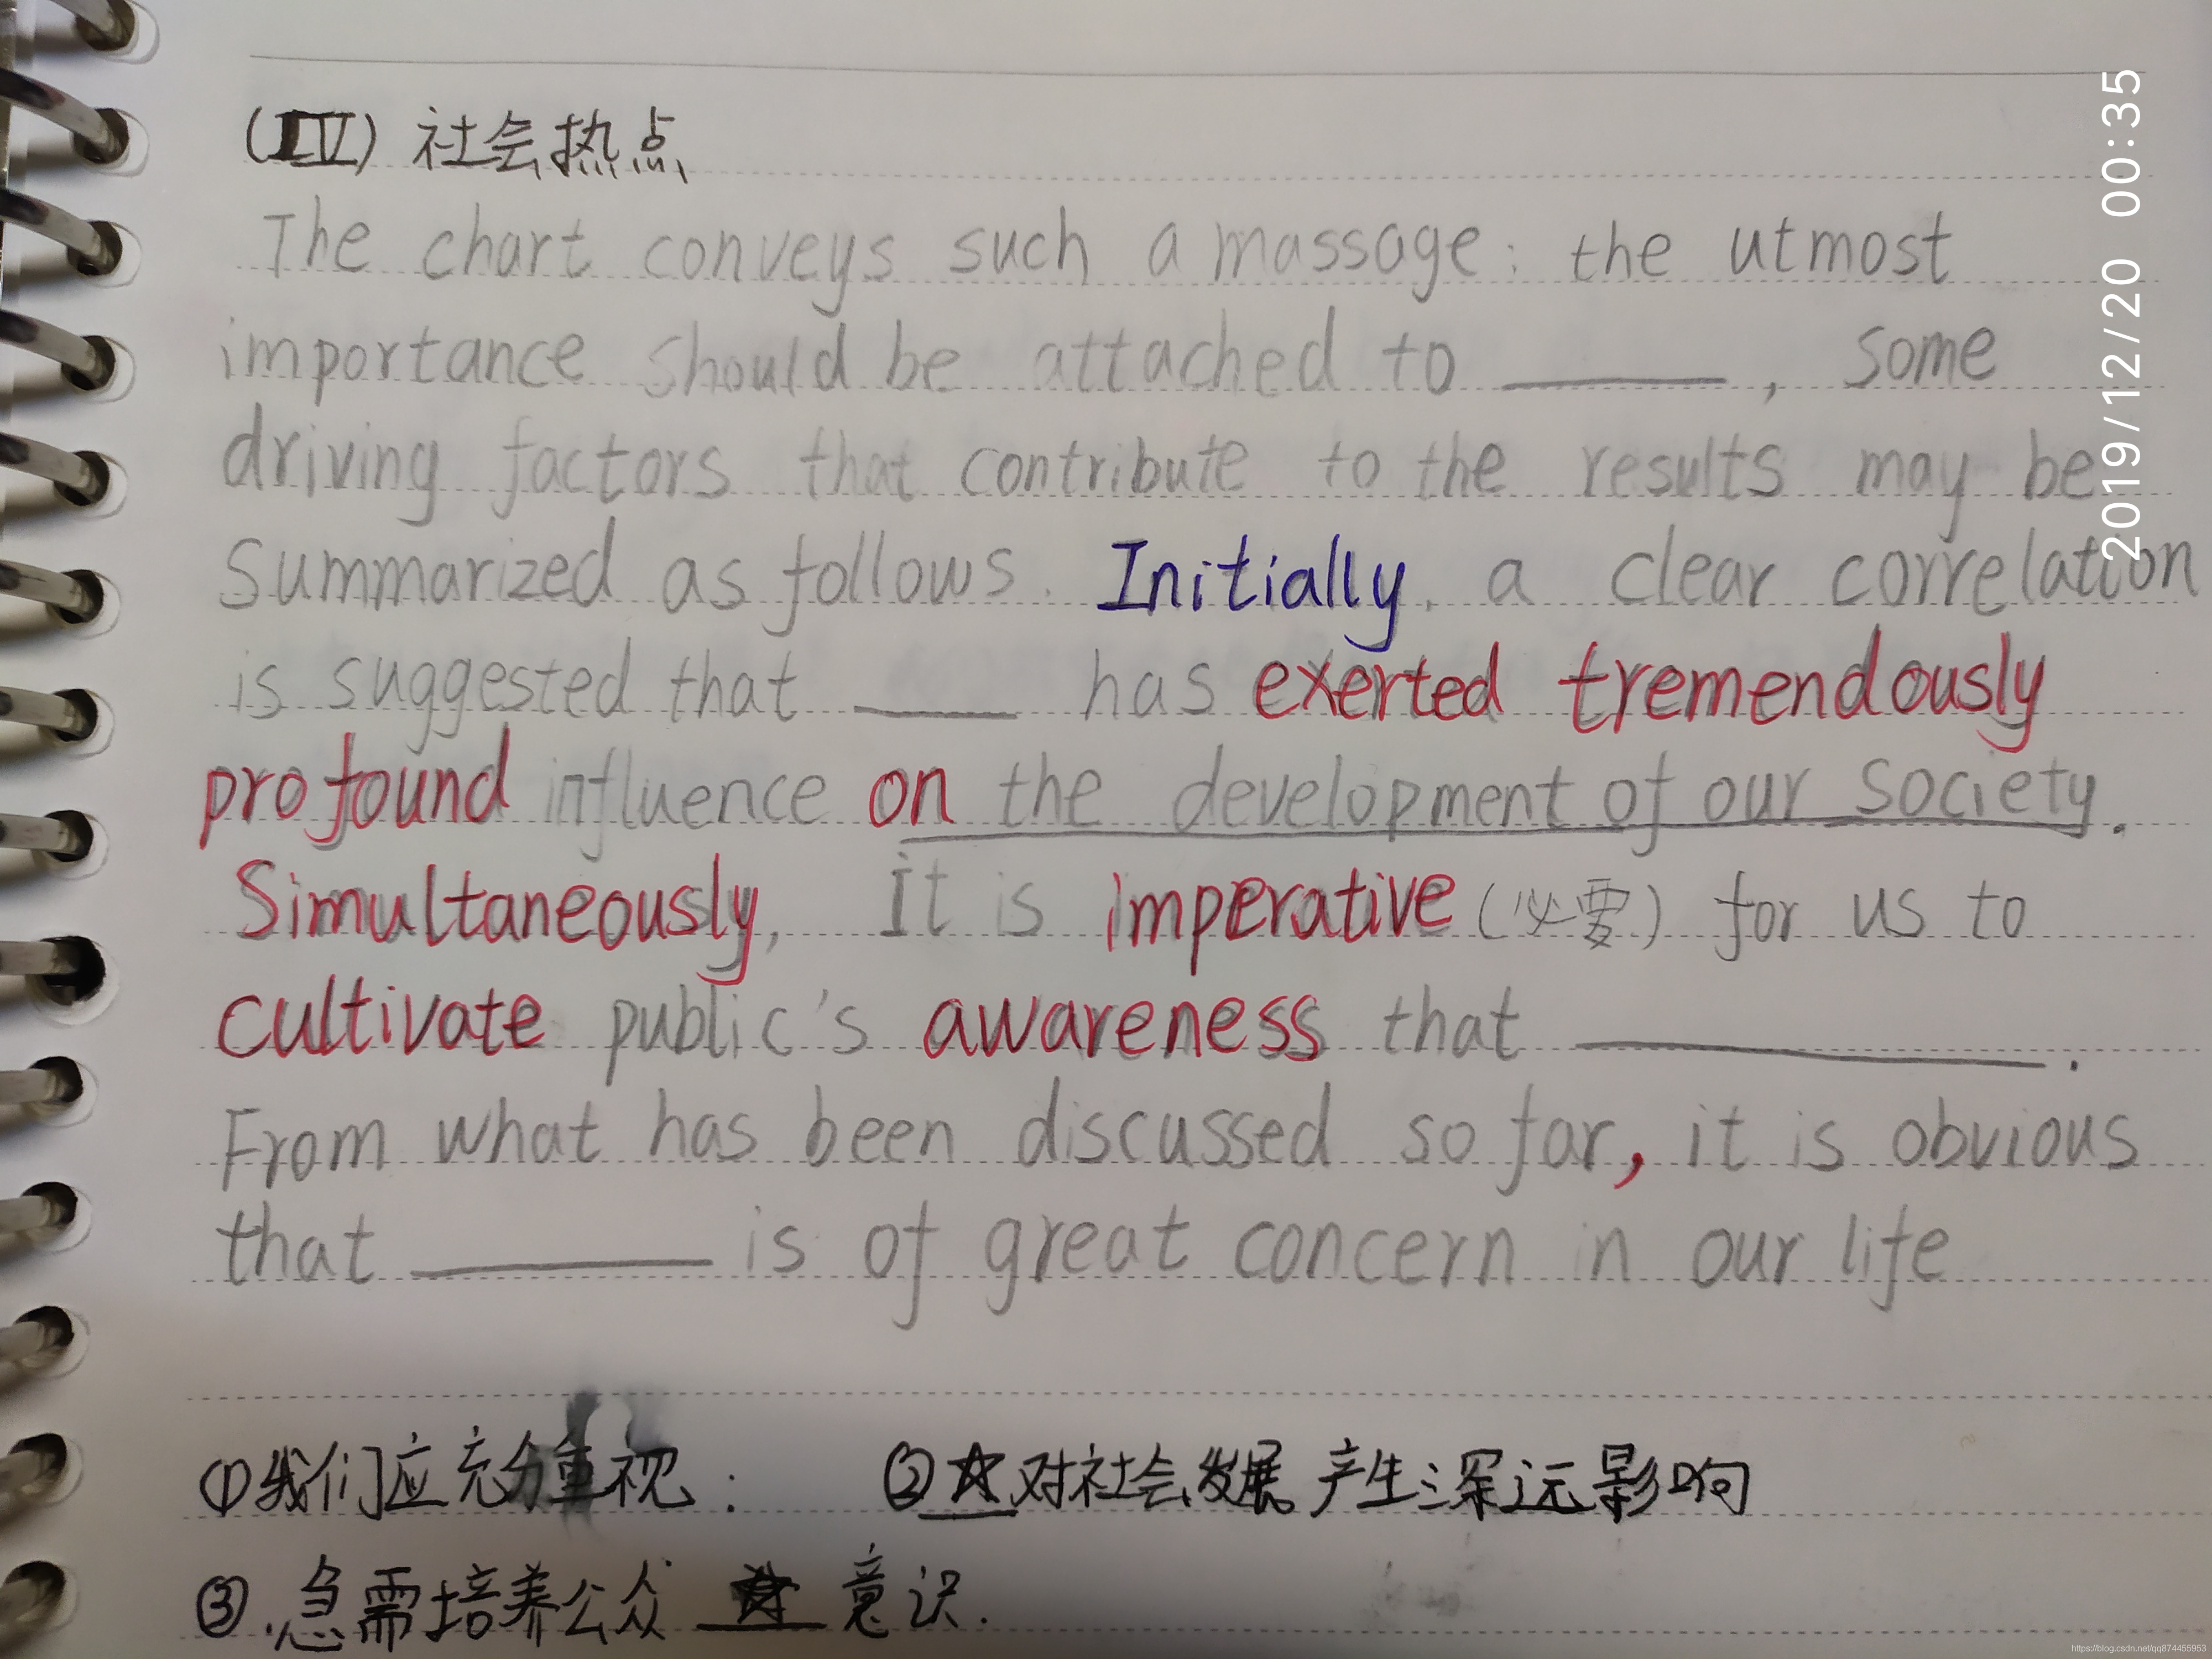 (IV) 社会热点
The chart conveys such a massage: the utmost
importance should be attached to ______, some
driving factors that contribute to the results may be
Summarized as follows. Initially, a clear correlation
is suggested that ____ has exerted tremendously
profound influence on the development of our society.
Simultaneously, it is imperative (必要) for us to
cultivate public's awareness that ____________.
From what has been discussed so far, it is obvious
that ________ is of great concern in our life
①我们应充分重视: ②☆对社会发展产生深远影响
③.急需培养公众 ☆ 意识.
2019/12/20 00:35
https://blog.csdn.net/qq874455953